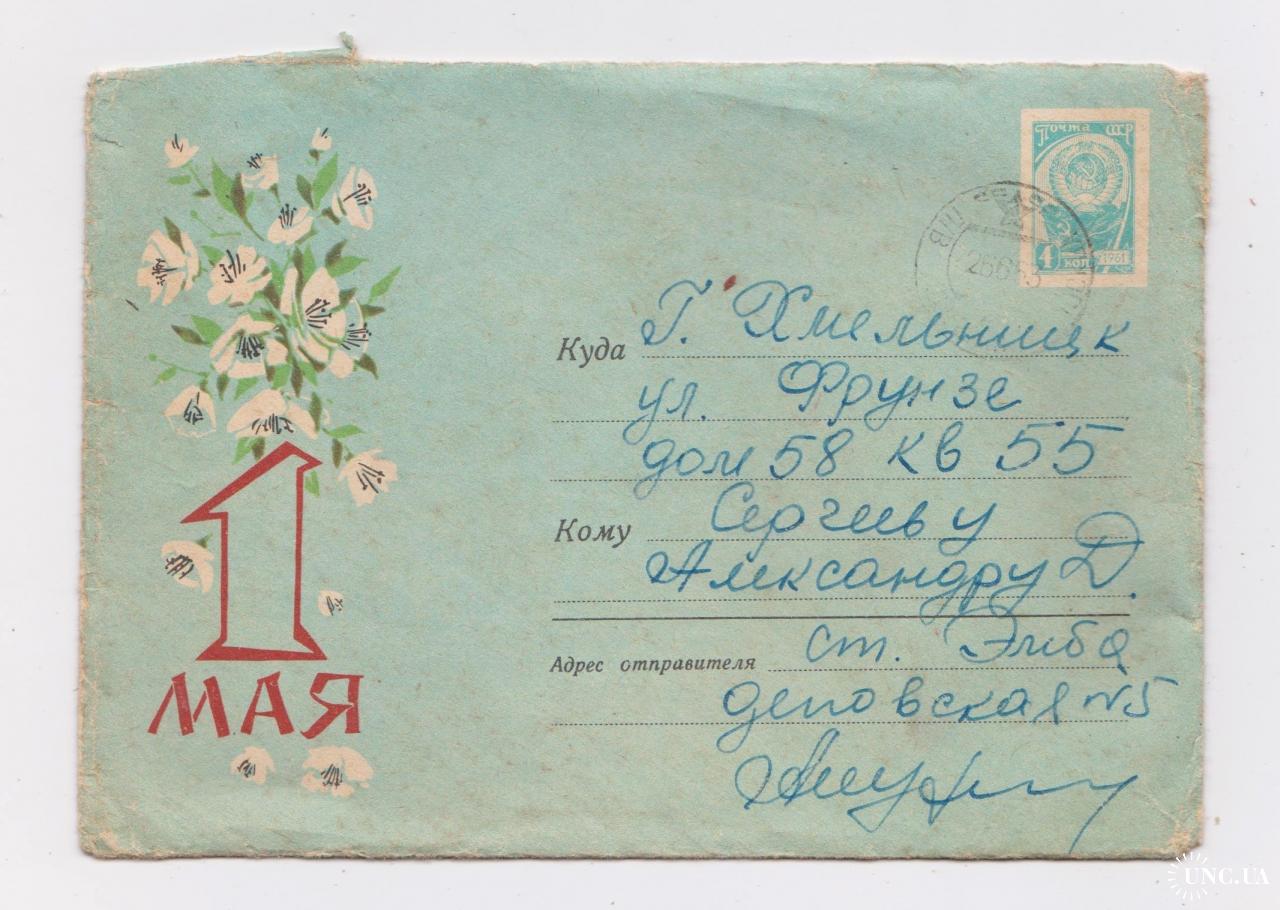 Почта СССР
4 коп
1961
Куда г. Хмельницк
ул. Фрунзе
дом 58 кв 55
Кому Сергееву
Александру Д.
Адрес отправителя ст. Эмба
деповская №5
1
МАЯ
UNC.UA